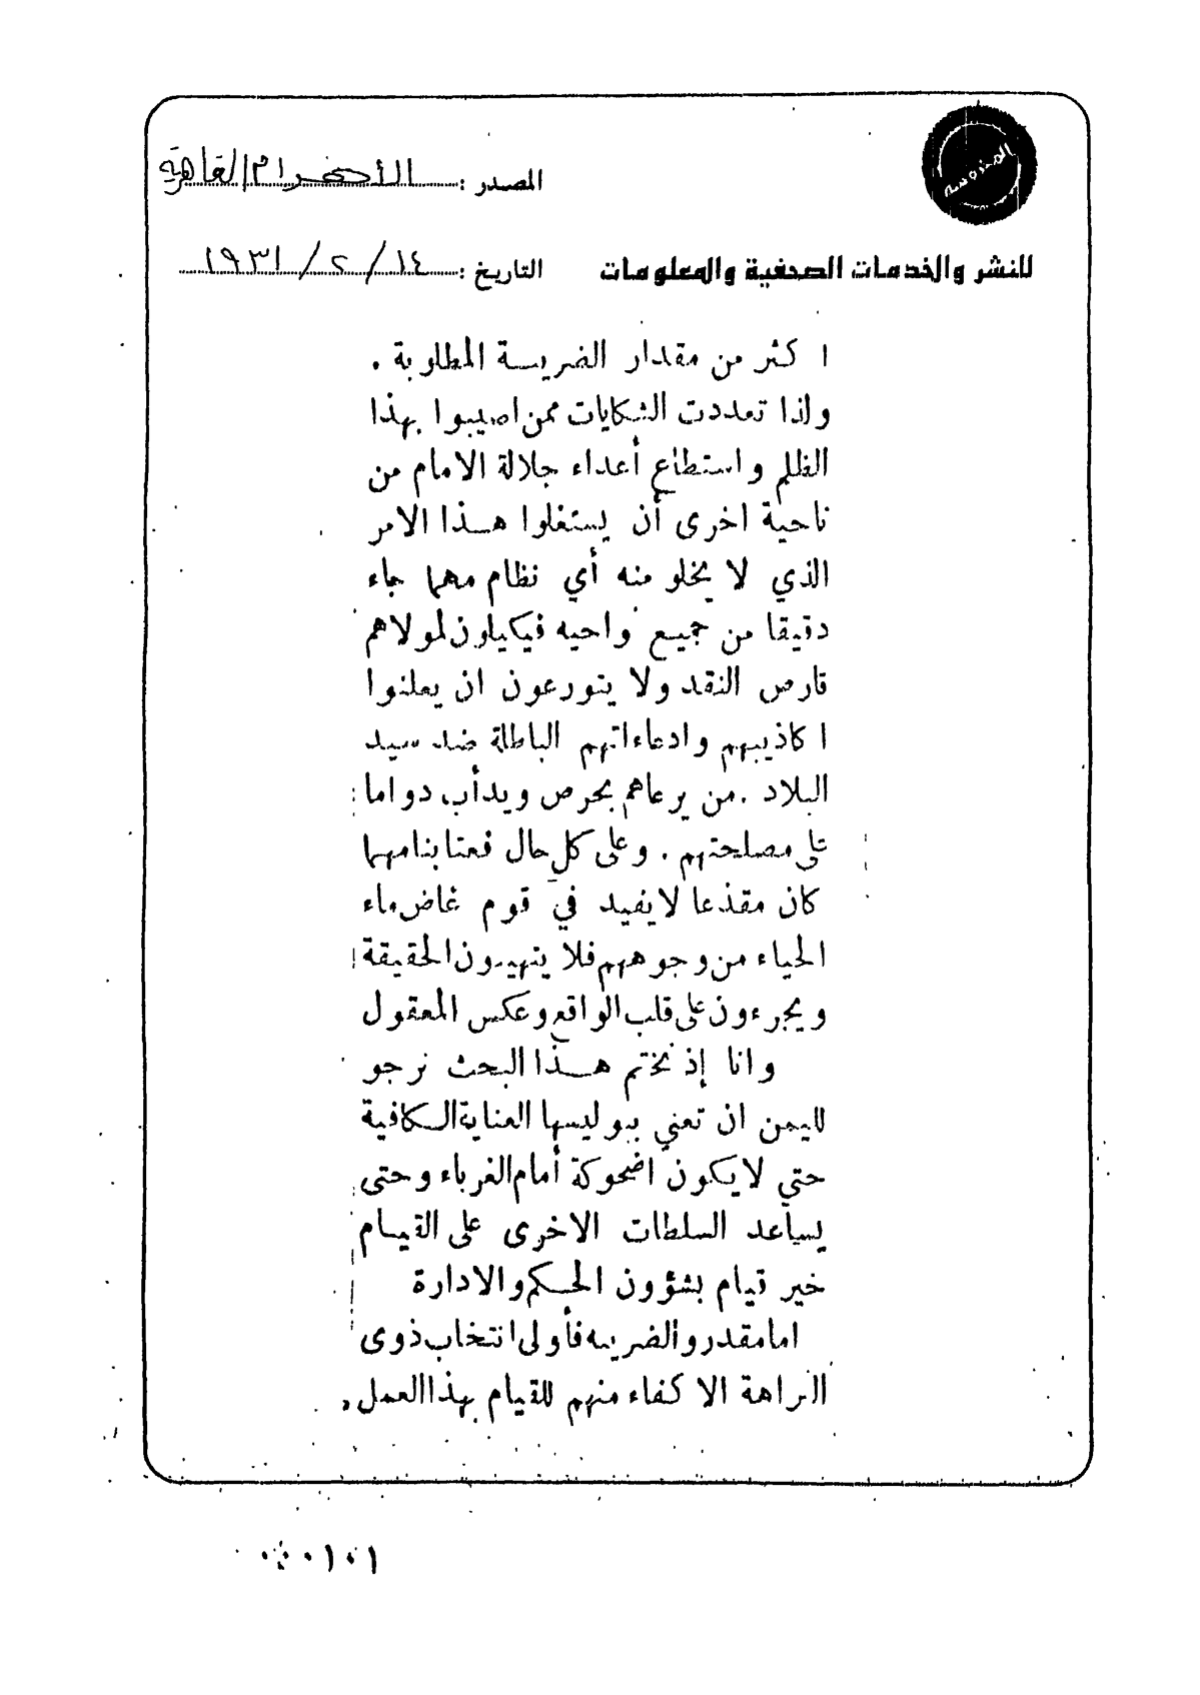 المحروسة
المصدر : الأهرام القاهرية
للنشر والخدمات الصحفية والمعلومات
التاريخ : ١٤ / ٢ / ١٩٣١
اكثر من مقدار الضريبة المطلوبة .
واذا تعددت الشكايات ممن اصيبوا بهذا
الظلم واستطاع أعداء جلالة الامام من
ناحية اخرى أن يستغلوا هذا الامر
الذي لا يخلو منه أي نظام مهما جاء
دقيقا من جميع نواحيه فيكيلون لمولاهم
قارص النقد ولا يتورعون ان يعلنوا
اكاذيبهم وادعاءاتهم الباطلة ضد سيد
البلاد . من يرعاهم بحرص ويدأب دواما
على مصلحتهم . وعلى كل حال فعتابنا مهما
كان مقذعا لا يفيد في قوم غاض ماء
الحياء من وجوههم فلا يتهيبون الحقيقة
ويجرءون على قلب الواقع وعكس المعقول
وانا إذ نختم هذا البحث نرجو
لليمن ان تعني ببوليسها العناية الكافية
حتي لا يكون اضحوكة أمام الغرباء وحتى
يساعد السلطات الاخرى على القيام
خير قيام بشؤون الحكم والادارة
اما مقدرو الضريبه فأولى انتخاب ذوى
النزاهة الاكفاء منهم للقيام بهذا العمل .